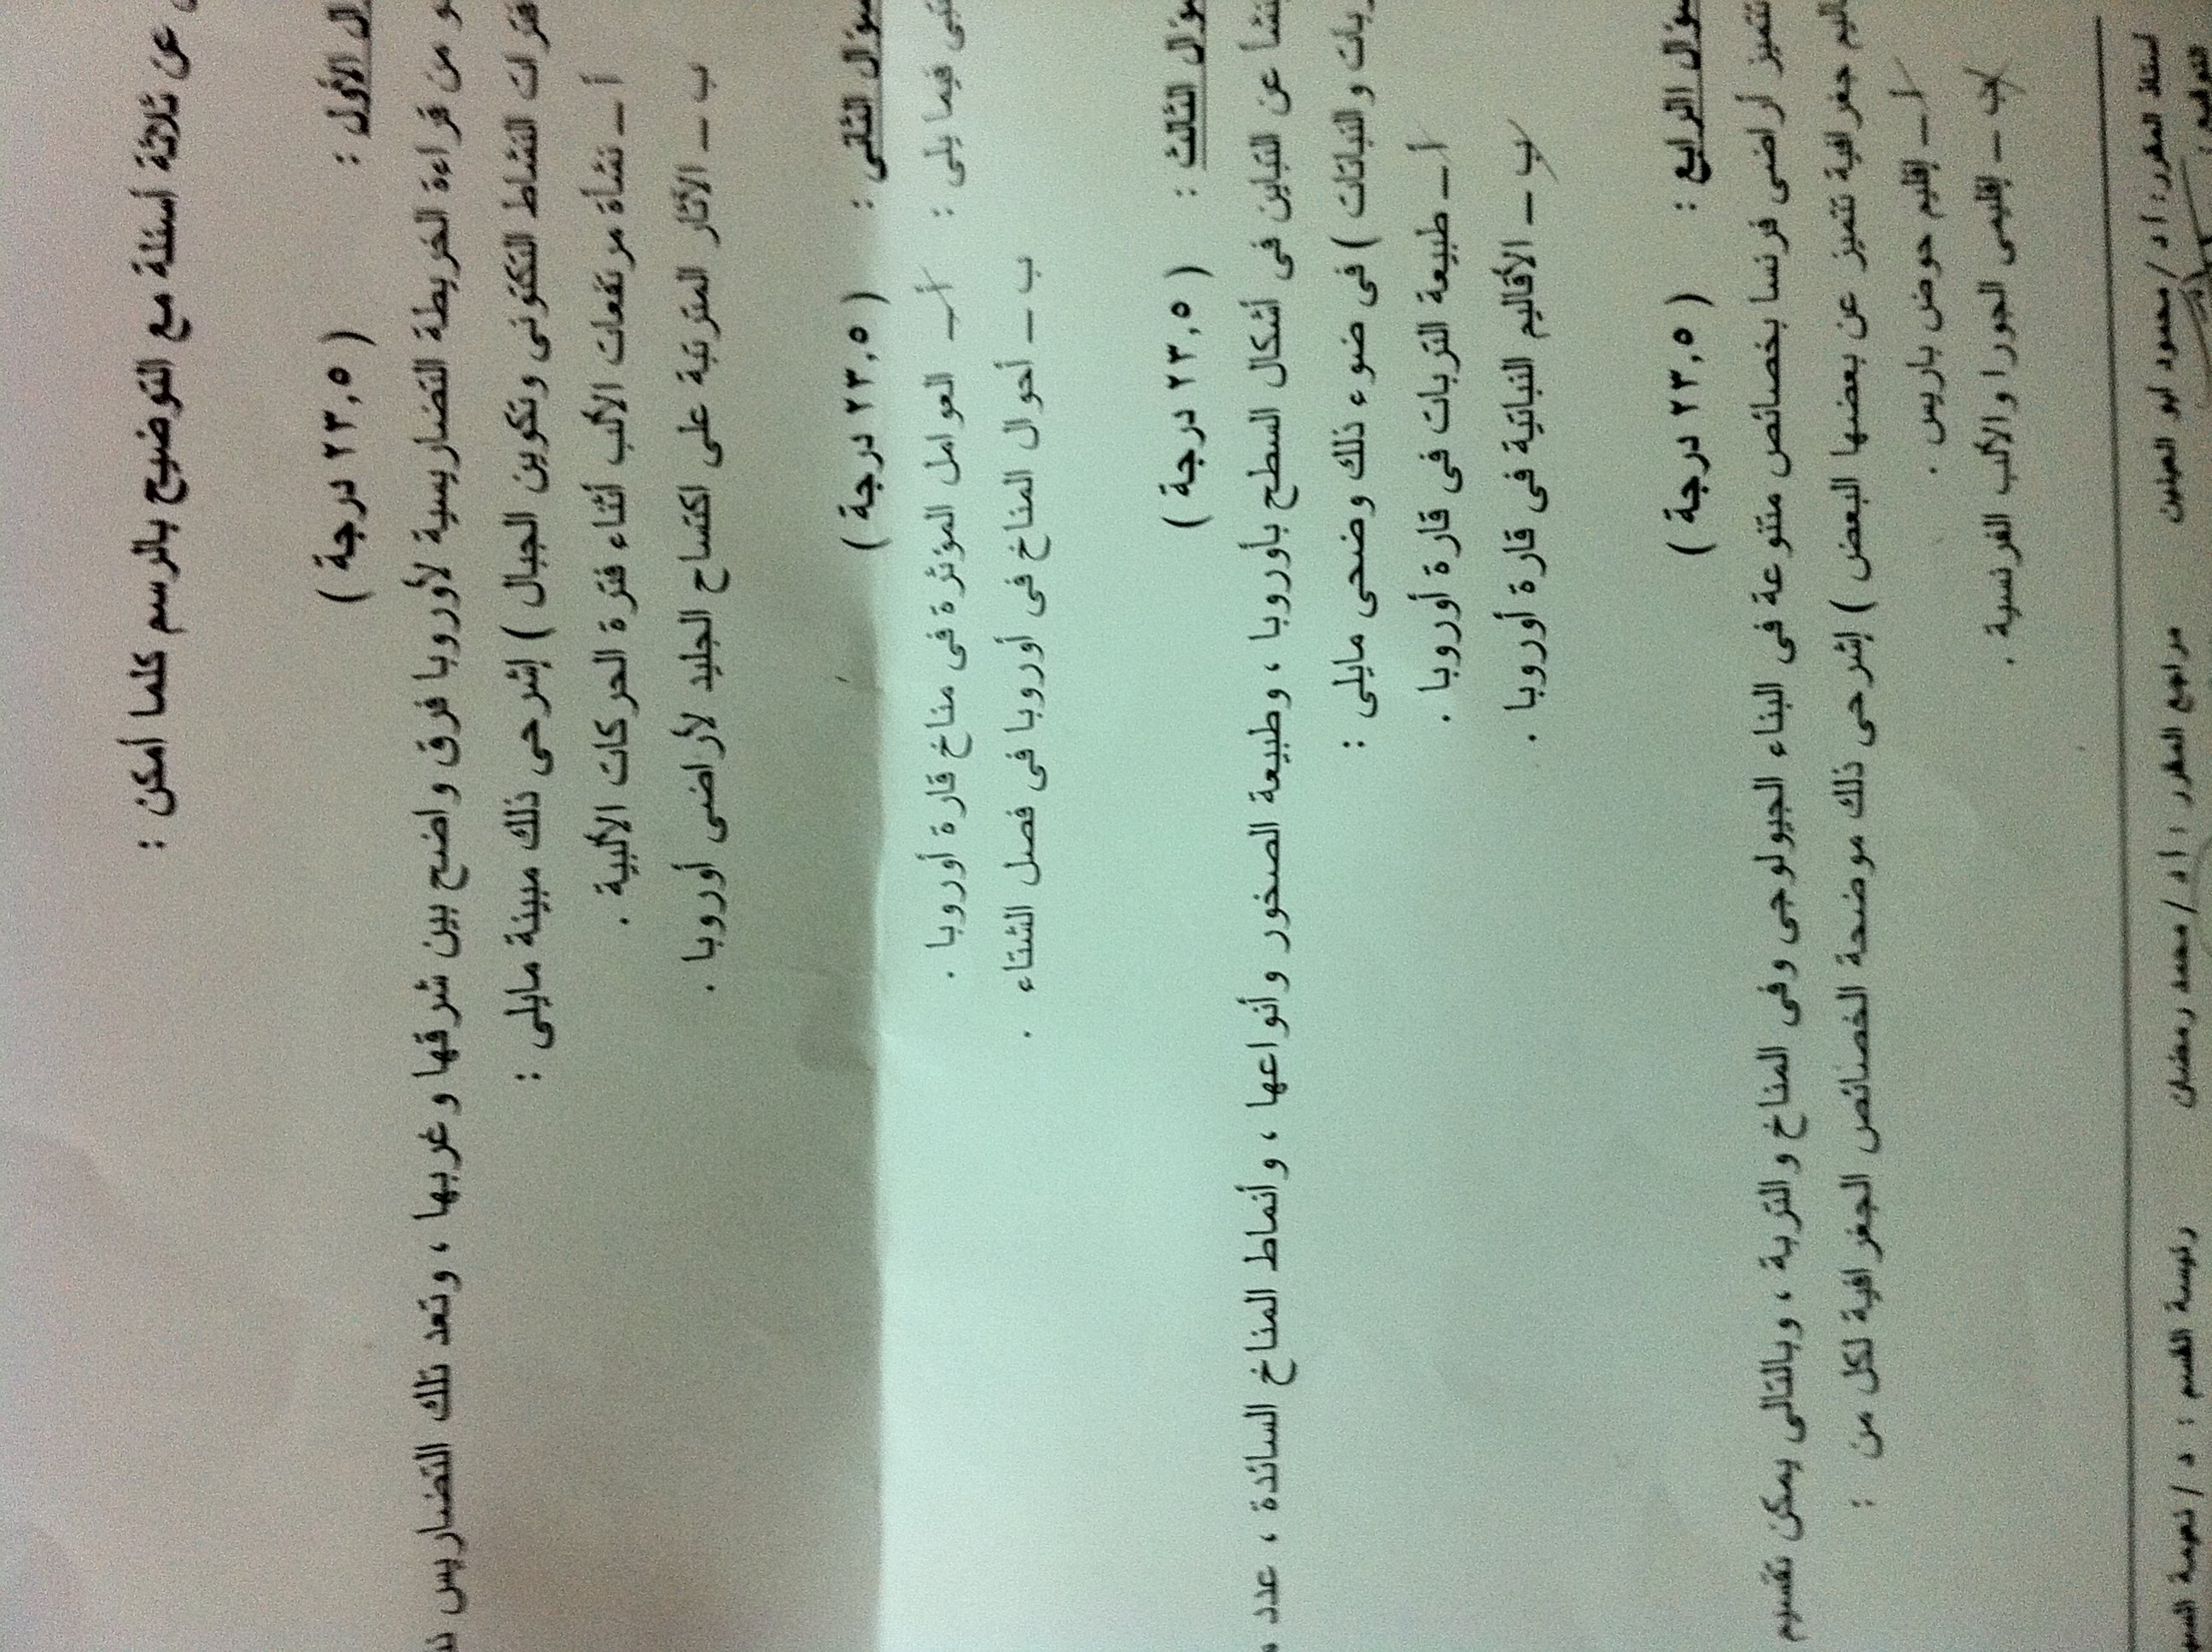 عن ثلاثة أسئلة مع التوضيح بالرسم كلما أمكن :
الأول : ( ٢٣,٥ درجة )
من قراءة الخريطة التضاريسية لأوروبا فرق واضح بين شرقها وغربها ، وتعد تلك التضاريس
فترات النشاط التكتونى وتكوين الجبال ) إشرحى ذلك مبينة مايلى :
أ – نشأة مرتفعات الألب أثناء فترة الحركات الألبية .
ب – الآثار المترتبة على اكتساح الجليد لأراضى أوروبا .
الثانى : ( ٢٣,٥ درجة )
فيما يلى :
أ – العوامل المؤثرة فى مناخ قارة أوروبا .
ب – أحوال المناخ فى أوروبا فى فصل الشتاء .
الثالث : ( ٢٣,٥ درجة )
عن التباين فى أشكال السطح بأوروبا ، وطبيعة الصخور وأنواعها ، وأنماط المناخ السائدة ، عدد
والنباتات ) فى ضوء ذلك وضحى مايلى :
أ – طبيعة التربات فى قارة أوروبا .
ب – الأقاليم النباتية فى قارة أوروبا .
الرابع : ( ٢٣,٥ درجة )
تتميز أراضى فرنسا بخصائص متنوعة فى البناء الجيولوجى وفى المناخ والتربة ، وبالتالى يمكن تقسيم
جغرافية تتميز عن بعضها البعض ) إشرحى ذلك موضحة الخصائص الجغرافية لكل من :
أ – إقليم حوض باريس .
ب – إقليمى الجورا والألب الفرنسية .
أستاذ المقرر : أ د / محمود ابو العينين مراجع المقرر : أ د / محمد رمضان رئيسة القسم : د / نعيمة
التوقيع :